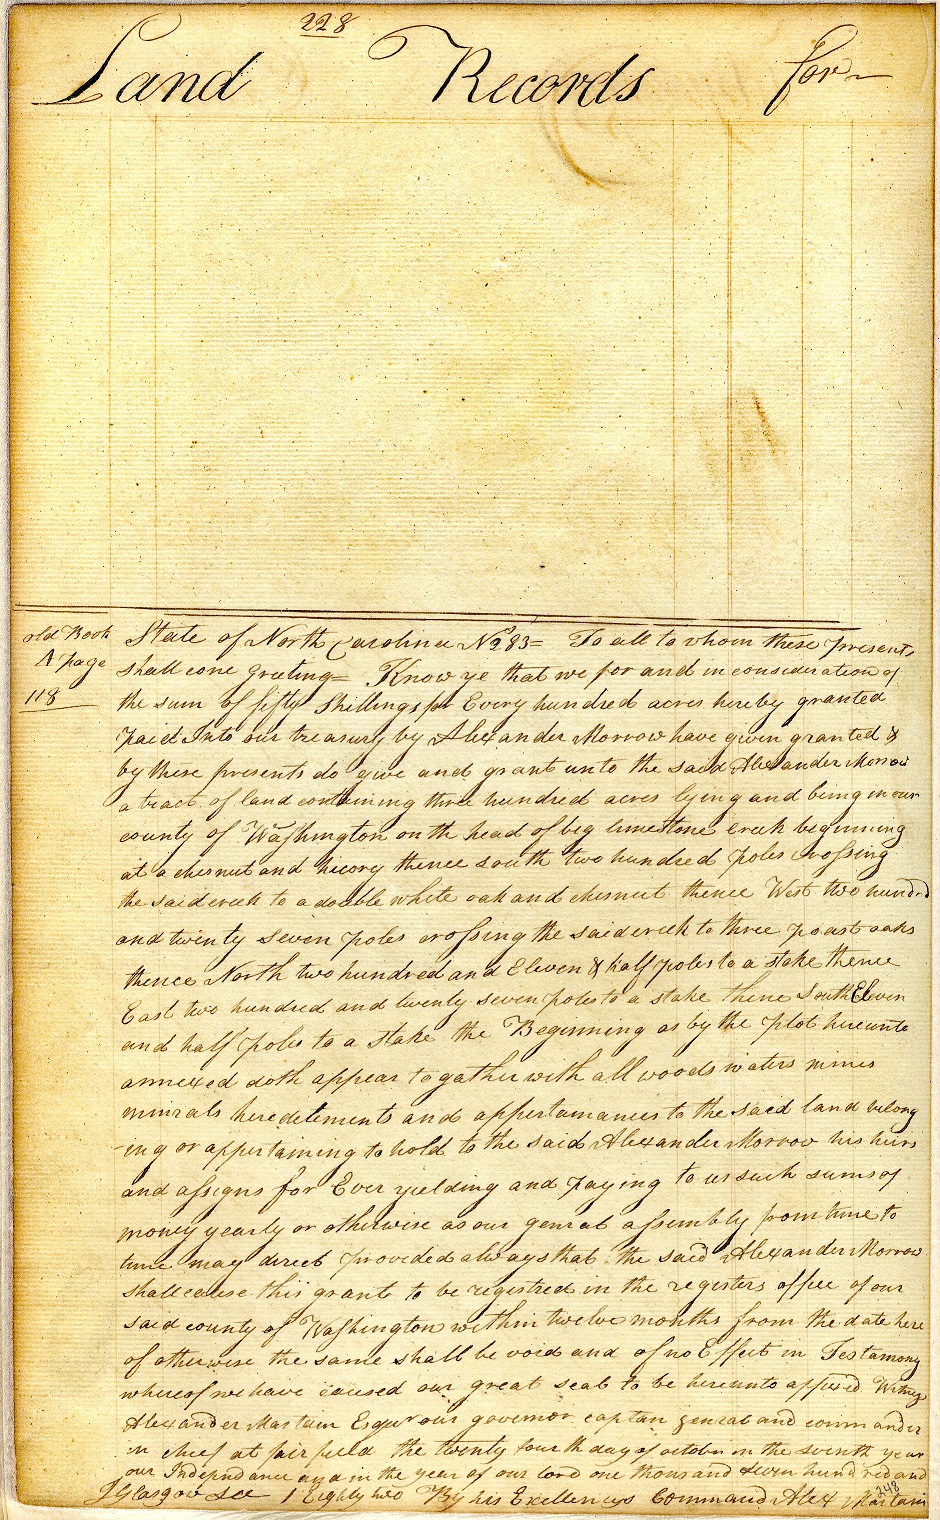 228
Land Records for
old Book
A page
118
State of North Carolina No 283= To all to whom these presents
shall cone Greeting= Know ye that we for and in consideration of
the sum of fifty Shillings for Every hundred acres hereby granted
paid Into our treasury by Alexander Morrow have given granted &
by these presents do give and grant unto the said Alexander Morrow
a tract of land containing three hundred acres lying and being in our
county of Washington on the head of big limestone creek beginning
at a chesnut and hicory thence south two hundred poles crossing
the said creek to a double white oak and chesnut thence West two hundred
and twenty seven poles crossing the said creek to three poast oaks
thence North two hundred and Eleven & half poles to a stake thence
East two hundred and twenty seven poles to a stake thence South Eleven
and half poles to a Stake the Beginning as by the plot hereunto
annexed doth appear togather with all woods waters mines
minirals hereditements and appertamances to the said land belong
-ing or appertaining to hold to the said Alexander Morrow his heirs
and assigns for Ever yielding and paying to us such sums of
money yearly or otherwise as our genral assembly from time to
time may direct provided always that the said Alexander Morrow
shall cause this grant to be registred in the registers office of our
said county of Washington within twelve months from the date here
of otherwise the same shall be void and of no Effect in Testamony
whereof we have caused our great seal to be hereunto affixed Witness
Alexander Martain Esqur our governor captan genral and commander
in chief at fair field the twenty fourth day of octobr in the seventh year
our Independance and in the year of our lord one thousand seven hundred and
J Glasgow Sec | Eighty two By his Excellencys Command Alex Martain
248